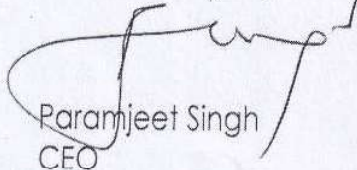 Paramjeet Singh
CEO